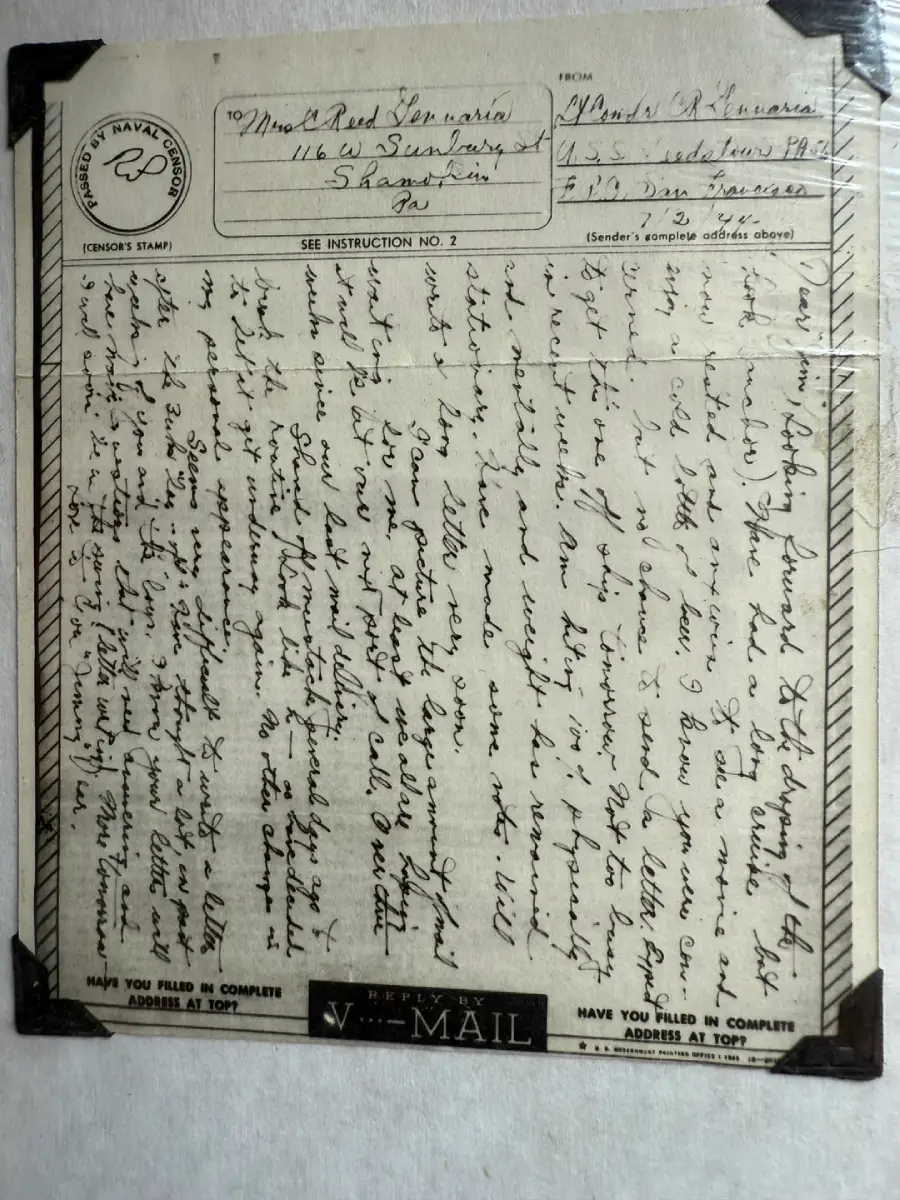 PASSED BY NAVAL CENSOR
(CENSOR'S STAMP)
TO
Mrs C Reed Gennaria
116 W Sunbury St
Shamokin
Pa
SEE INSTRUCTION NO. 2
FROM
Lt Comdr C R Gennaria
U.S.S. Leedstown
F.P.O. San Francisco
7/2/44
(Sender's complete address above)
Dear Jim, Looking forward to the dropping of the
hook (anchor). Have had a long cruise but
now rested and anxious to see a movie and
enjoy a cold bottle of beer. I know you were con-
cerned but no chance to send a letter. Expect
to get this one off ship tomorrow. Not too busy
in recent weeks. Am hitting 100% physically
and mentally and weight has remained
stationary. Have made some notes. Will
write a long letter very soon.
I can picture the large amount of mail
waiting for me, at least we all are
it will be at our next port of call. Over
weeks since our last mail delivery.
Shaved off mustache several days ago to
break the routine. Took like h— as
to let it get underway again. No other changes in
my personal appearance.
Seems very difficult to write a letter
after the Have thought a lot, in past
weeks of you and the boys. I know your letters will
have many questions that will need answering and
I will soon be in the swing (letter writing). More tomorrow
Love to you
HAVE YOU FILLED IN COMPLETE
ADDRESS AT TOP?
REPLY BY
V···—MAIL
HAVE YOU FILLED IN COMPLETE
ADDRESS AT TOP?
U. S. GOVERNMENT PRINTING OFFICE : 1943